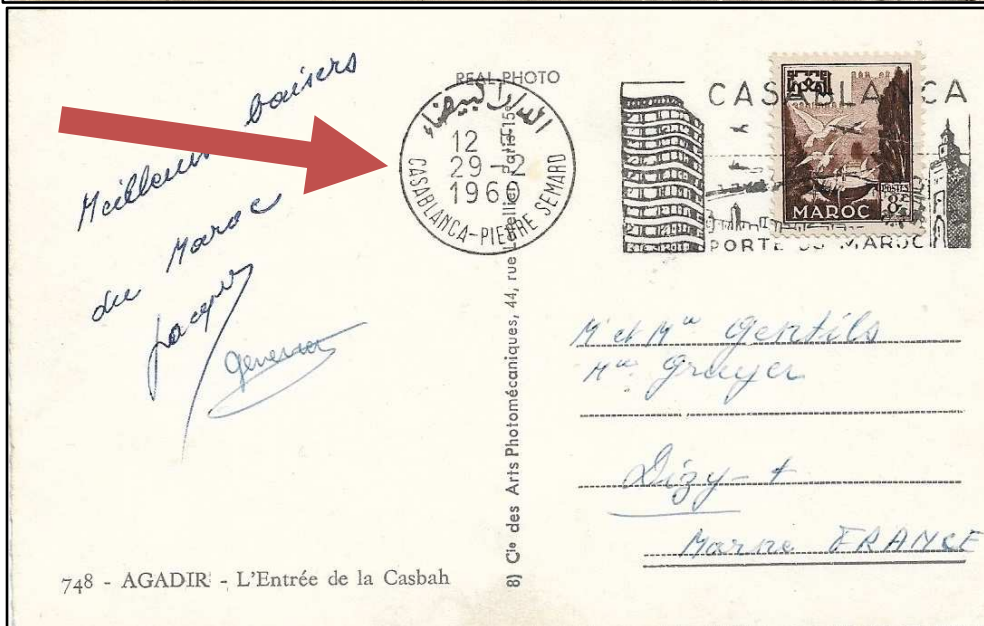 Meilleurs baisers
du Maroc
Jacques
REAL PHOTO
الدار البيضاء
12
29-2
1960
CASABLANCA-PIERRE SEMARD
CASABLANCA
POSTES 8F
MAROC
PORTE DU MAROC
8) Cie des Arts Photomécaniques, 44, rue Letellier, Paris-15e
Mr et Mme Gentils
Mme Grayer
Dizy-
Marne FRANCE
748 - AGADIR - L'Entrée de la Casbah